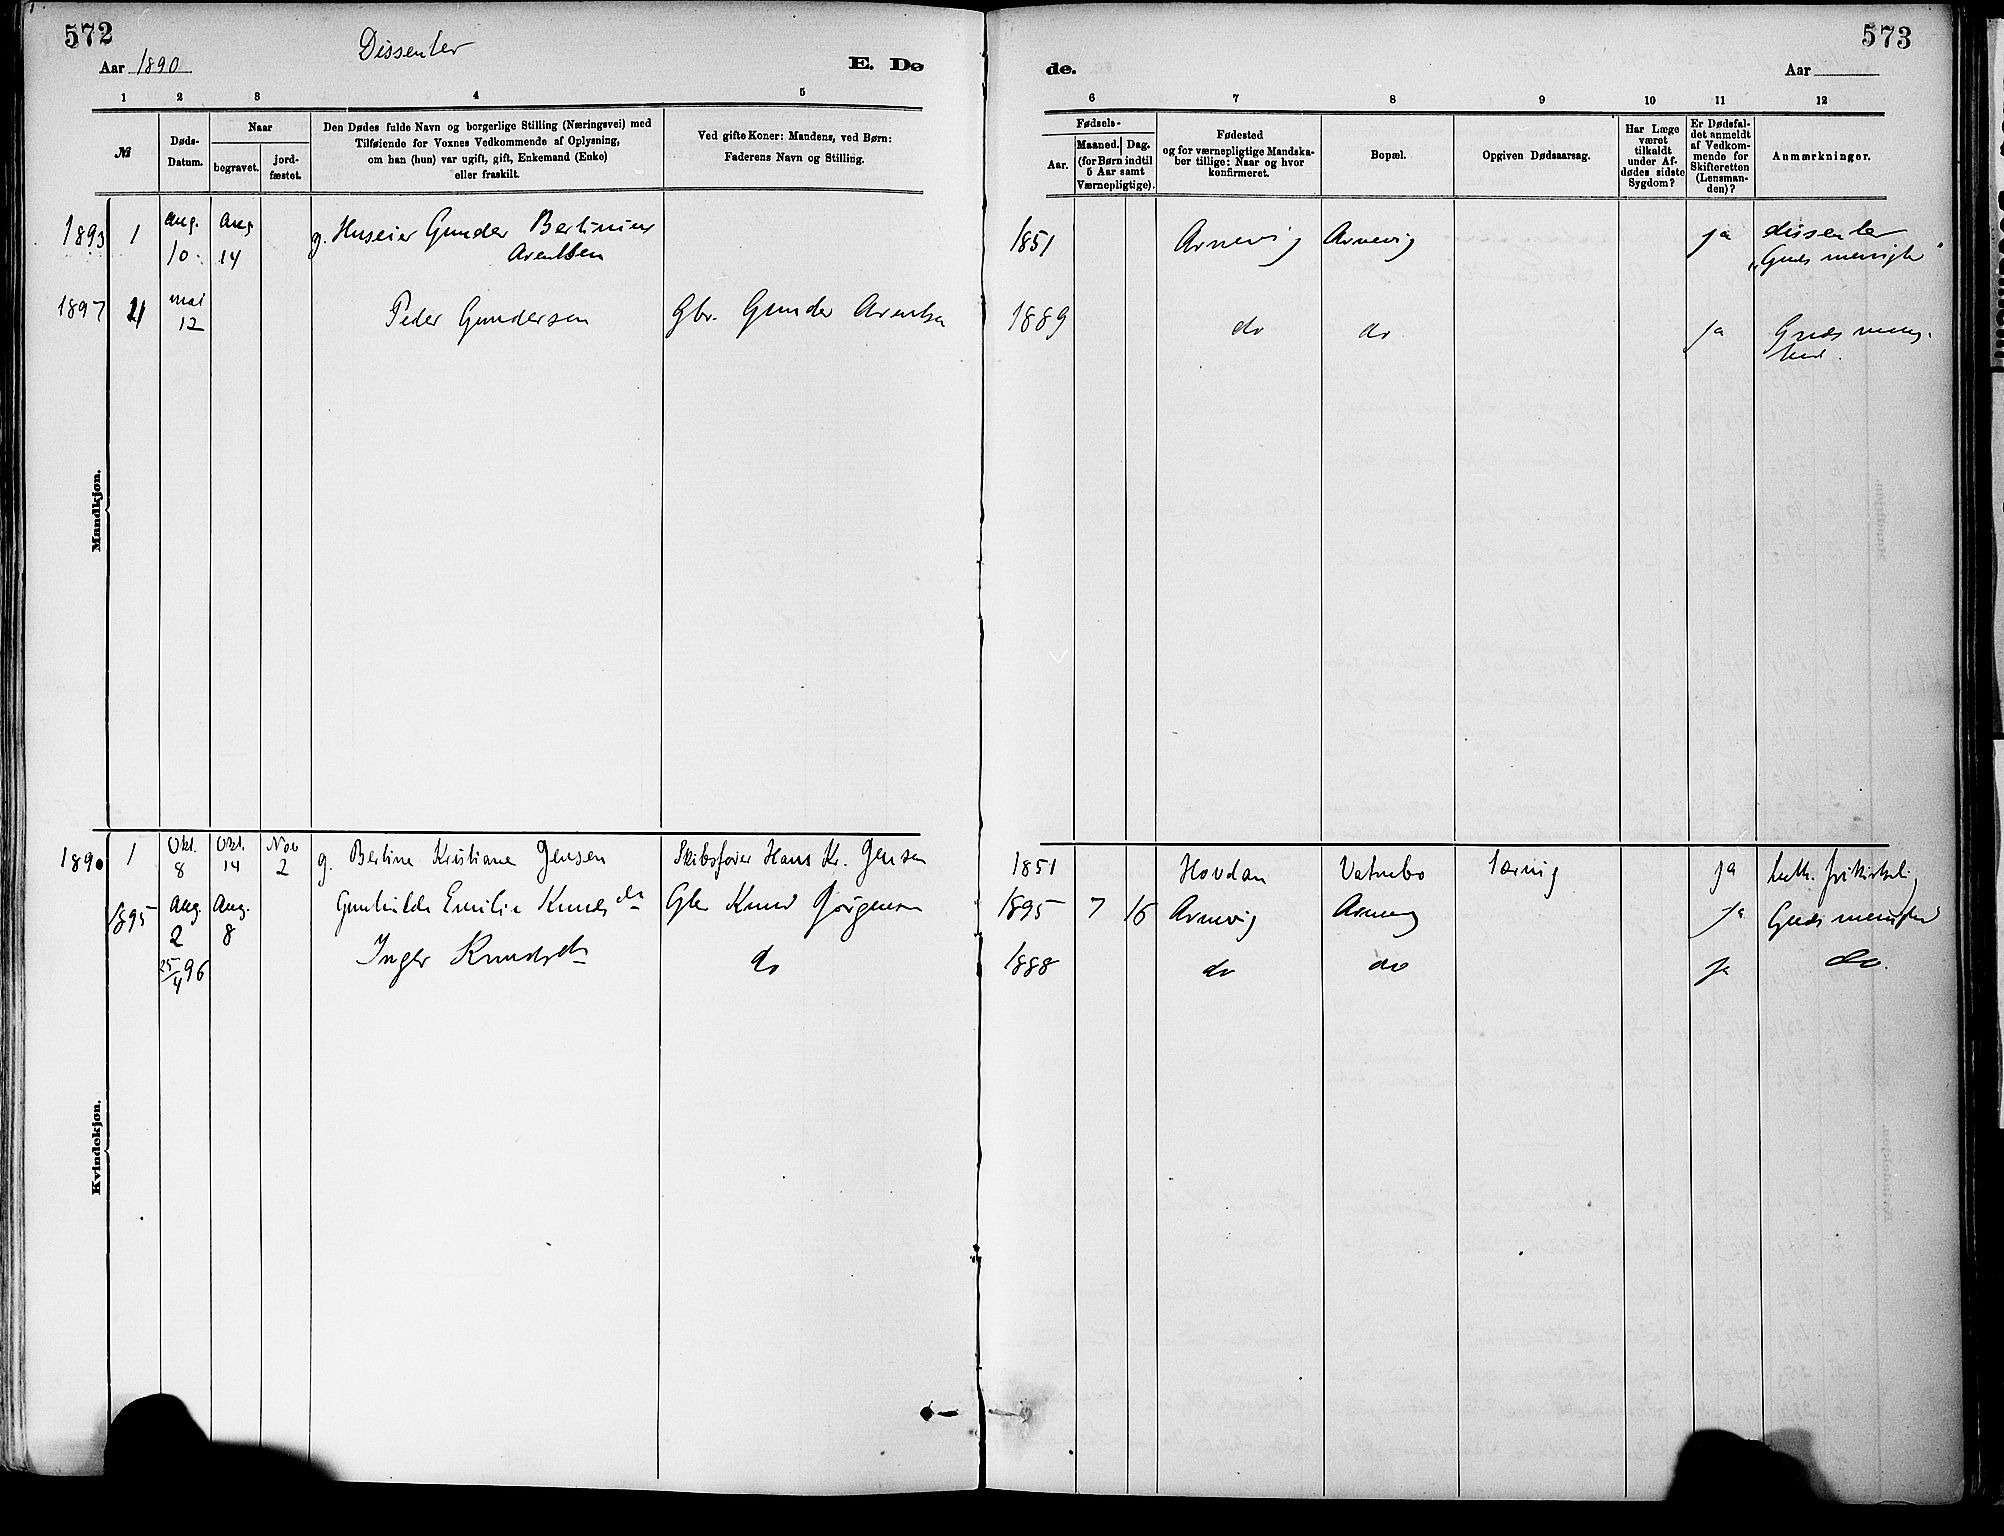 572
Aar 1890
Dissenter
E. Dø
de.
573
Aar
1 2 3 4 5
6 7 8 9 10 11 12
№
Døds-
Datum.
Naar
begravet.
jord-
fæstet.
Den Dødes fulde Navn og borgerlige Stilling (Næringsvei) med
Tilføiende for Voxnes Vedkommende af Oplysning,
om han (hun) var ugift, gift, Enkemand (Enke)
eller fraskilt.
Ved gifte Koner: Mandens, ved Børn:
Faderens Navn og Stilling.
Fødsels-
Aar.
Maaned. Dag.
(for Børn indtil
5 Aar samt
Værnepligtige).
Fødested
og for værnepligtige Mandska-
ber tillige: Naar og hvor
konfirmeret.
Bopæl.
Opgiven Dødsaarsag.
Har Læge
været
tilkaldt
under Af-
dødes sidste
Sygdom?
Er Dødsfal-
det anmeldt
af Vedkom-
mende for
Skifteretten
(Lensman-
den)?
Anmærkninger.
Mandkjøn.
1893 1 Aug. 10 Aug 14 g. Huseier Gunder Bertinius Arentsen 1851 Arnevig Arnevig ja dissenter "Guds menighe"
1897 mai 12 Peder Gundersen Gbr. Gunder Arentsen 1889 do do ja Guds menig-
hed.
Kvindekjøn.
1890 1 Okt. 8 Okt. 14 Nov 2 g. Bertine Kristiane Jensen Skibsfører Hans Kr. Jensen 1851 Hovdan Vatnebo tæring ja luth. frikirkelig
1895 Aug. 2 Aug. 8 Gunhilde Emilie Knudsdn Gbr Knud Jørgensen 1895 7 16 Arnevig Arnevig ja Guds menighed
25/4 96 Inger Knudsdn do 1888 do do ja do.